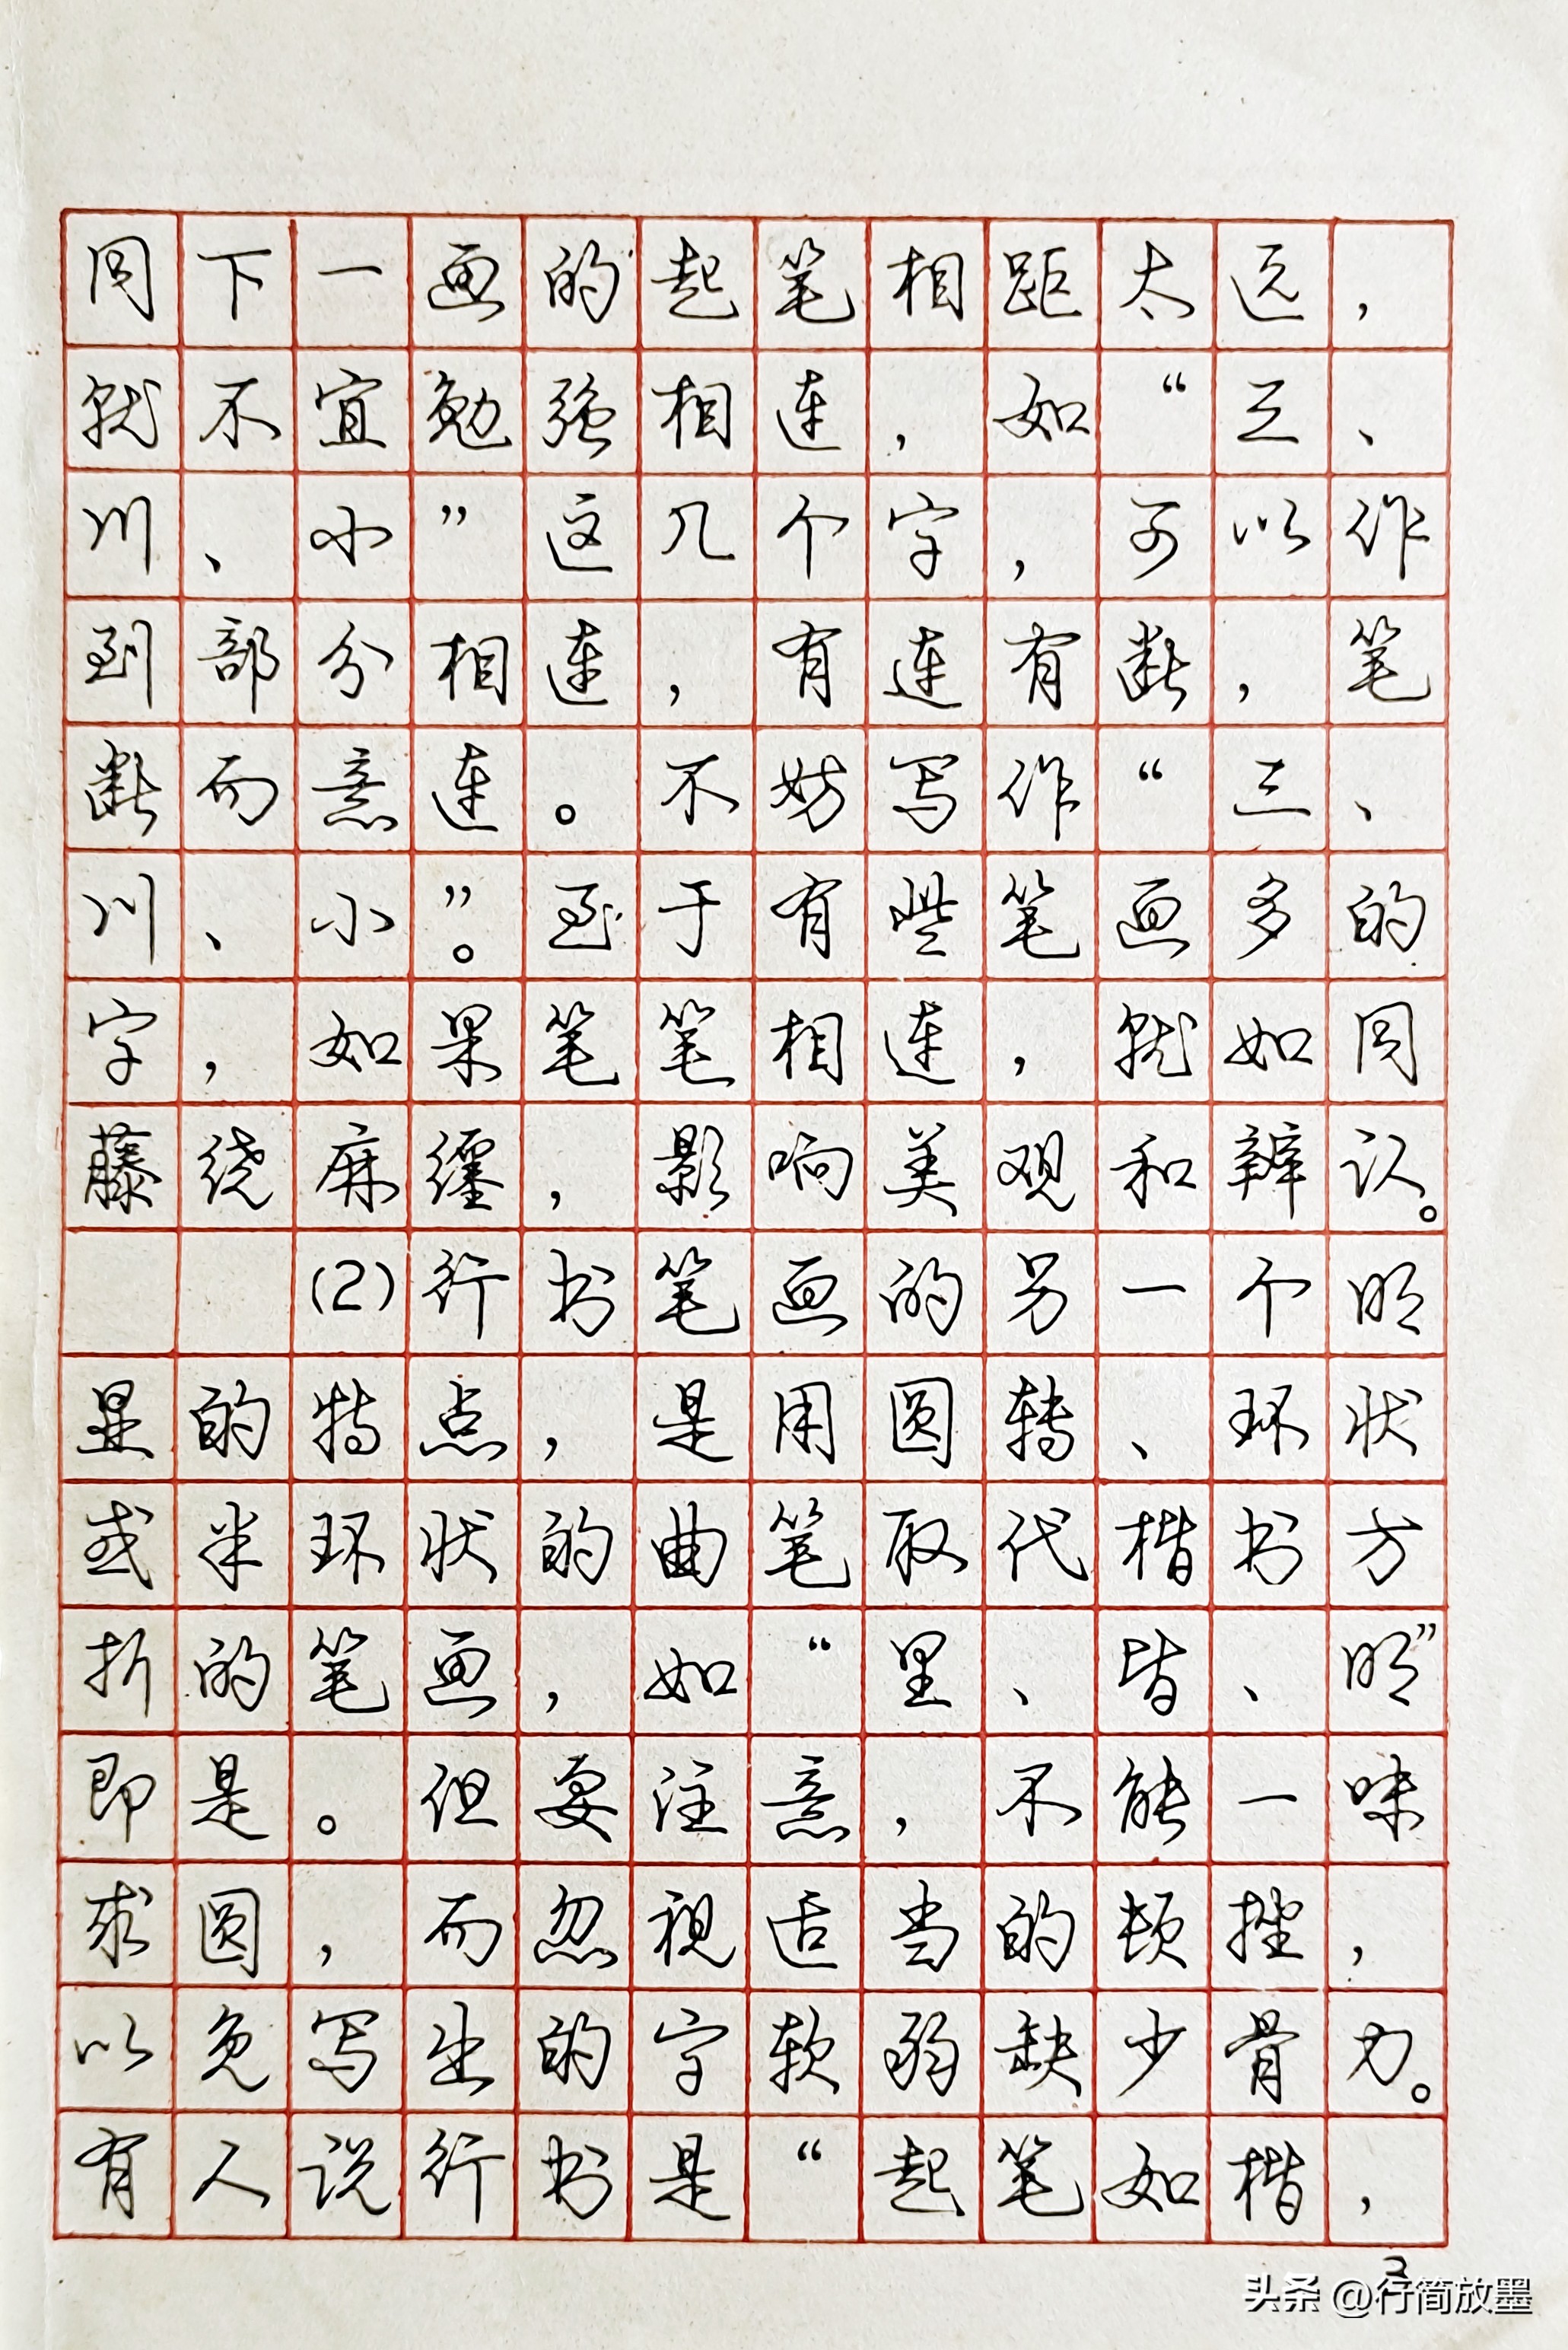 同下一画的起笔相距太远，
就不宜勉强相连，如“三、
川、小”这几个字，可以作
到部分相连，有连有断，笔
断而意连。不妨写作“三、
川、小”。至于有些笔画多的
字，如果笔笔相连，就如同
藤绕麻缠，影响美观和辨认。
(2)行书笔画的另一个明
显的特点，是用圆转、环状
或半环状的曲笔取代楷书方
折的笔画，如“里、皆、明”
即是。但要注意，不能一味
求圆，而忽视适当的顿挫，
以免写出的字软弱缺少骨力。
有人说行书是“起笔如楷，
3
头条 @行简放墨